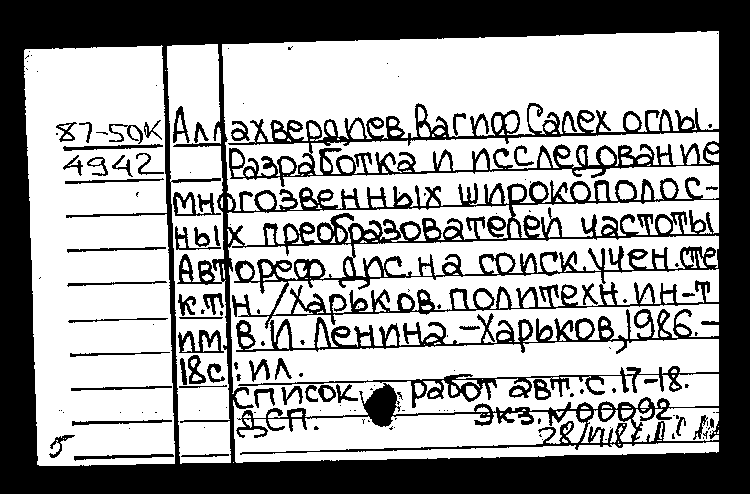 87-50К Аллахвердиев, Вагиф Салех оглы.
4942 Разработка и исследование
многозвенных широкополос-
ных преобразователей частоты
Автореф. дис. на соиск. учен. сте
к.т.н. /Харьков. политехн. ин-т
им. В.И. Ленина.-Харьков, 1986.-
18с.: ил.
Список работ авт.: с. 17-18.
ДСП. Экз. N 00092
5